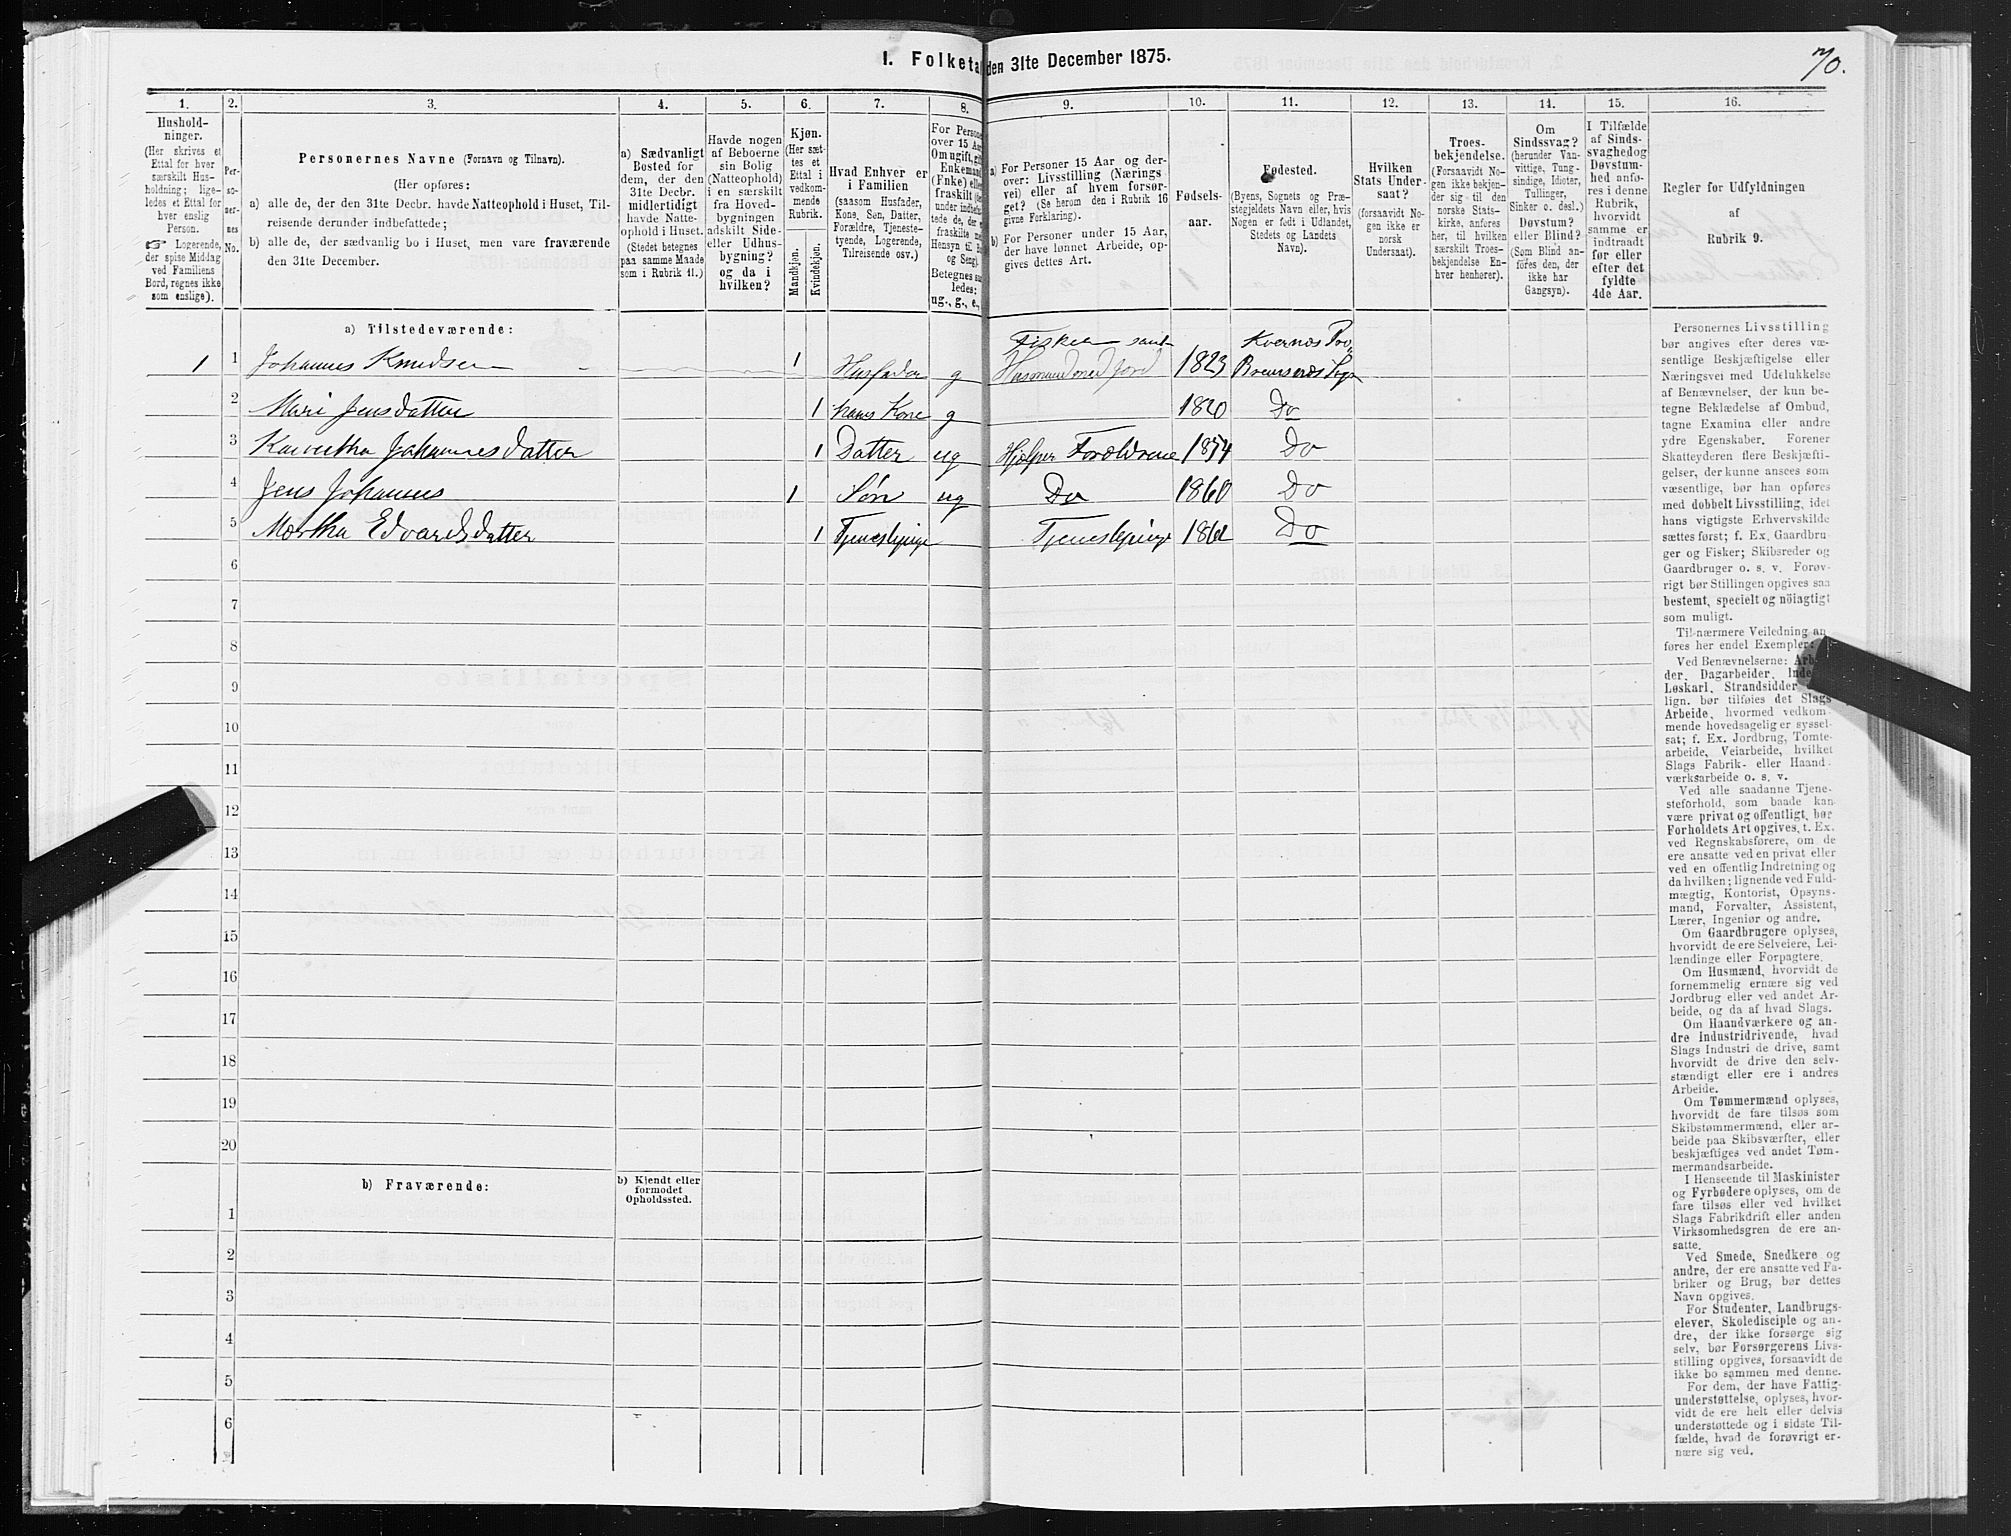 I. Folketal den 31te December 1875.
70.
1.
2.
3.
4.
5.
6.
7.
8.
9.
10.
11.
12.
13.
14.
15.
16.
Hushold-
ninger.
(Her skrives et
Ettal for hver
særskilt Hus-
holdning; lige-
ledes et Ettal for
hver enslig
Person.
☞ Logerende,
der spise Middag
ved Familiens
Bord, regnes ikke
som enslige).
Per-
so-
ner-
nes
No.
Personernes Navne (Fornavn og Tilnavn).
(Her opføres:
a) alle de, der den 31te Decbr. havde Natteophold i Huset, Til-
reisende derunder indbefattede;
b) alle de, der sædvanlig bo i Huset, men vare fraværende
den 31te December.
a) Sædvanligt
Bosted for
dem, der den
31te Decbr.
midlertidigt
havde Natte-
ophold i Huset.
(Stedet betegnes
paa samme Maade
som i Rubrik 11.)
Havde nogen
af Beboerne
sin Bolig
(Natteophold)
i en særskilt
fra Hoved-
bygningen
adskilt Side-
eller Udhus-
bygning?
og da i
hvilken?
Kjøn.
(Her sæt-
tes et
Ettal i
vedkom-
mende
Rubrik.
Mandkjøn.
Kvindekjøn.
Hvad Enhver er
i Familien
(saasom Husfader,
Kone, Søn, Datter,
Forældre, Tjeneste-
tyende, Logerende,
Tilreisende osv.)
For Persone
over 15 Aar
Om ugift, gift
Enkemand
(Enke) eller
fraskilt
under indbefat-
tede de, der
fraskilte
Hensyn til
og Seng).
Betegnes saa
ledes:
ug., g., e.,
a) For Personer 15 Aar og der-
over: Livsstilling (Nærings
vei) eller af hvem forsør-
get? (Se herom den i Rubrik 16
givne Forklaring).
b) For Personer under 15 Aar,
der have lønnet Arbeide, op-
gives dettes Art.
Fødsels-
aar.
Fødested.
(Byens, Sognets og Præ-
stegjeldets Navn eller, hvis
Nogen er født i Udlandet,
Stedets og Landets
Navn).
Hvilken
Stats Under-
saat?
(forsaavidt No-
gen ikke er
norsk
Undersaat).
Troes-
bekjendelse.
(Forsaavidt No-
gen ikke bekjen-
der sig til den
norske Stats-
kirke, anføres
her, til hvilken
særskilt Troes-
bekjendelse En-
hver henhører).
Om
Sindssvag?
(herunder Van-
vittige, Tung-
sindige, Idioter,
Tullinger,
Sinker o. desl.)
Døvstum?
eller Blind?
(Som Blind an-
føres den, der
ikke har
Gangsyn).
I Tilfælde
af Sinds-
svaghed og
Døvstum-
hed anfø-
res i denne
Rubrik,
hvorvidt
samme er
indtraadt
før eller
efter det
fyldte
4de Aar.
Regler for Udfyldningen
af
Rubrik 9.
a) Tilstedeværende:
1 1 Johannes Knudsen 1 Husfader g Fisker samt Husmand med Jord 1823 Kvernes Præ Bremsnes Sogn
2 Mari Jensdatter 1 hans Kone g 1820 Do
3 Johannesdatter 1 Datter ug Hjelper Forældrene 1854 Do
4 Jens Johannes 1 Søn ug Do 1860 Do
5 Martha Edvardsdatter 1 Tjenestepige Tjenestepige 1861 Do
6
7
8
9
10
11
12
13
14
15
16
17
18
19
20
b) Fraværende:
b) Kjendt eller
formodet
Opholdssted.
1
2
3
4
5
6
Personernes Livsstilling
bør angives efter deres væ-
sentlige Beskjæftigelse eller
Næringsvei med Udelukkelse
af Benævnelser, der kun be-
tegne Beklædelse af Ombud,
tagne Examina eller andre
ydre Egenskaber. Forener
Skatteyderen flere Beskjæfti-
gelser, der kunne ansees som
væsentlige, bør han opføres
med dobbelt Livsstilling, idet
hans vigtigste Erhvervskilde
sættes først; f. Ex. Gaardbru
ger og Fisker; Skibsreder og
Gaardbruger o. s. v. Forøv-
rigt bør Stillingen opgives saa
bestemt, specielt og nöiagtigt
som muligt.
Til nærmere Veiledning an
føres her endel Exempler:
Ved Benævnelserne: Arbei
der, Dagarbeider, Inder
Løskarl, Strandsidder
lign. bør tilføies det Slags
Arbeide, hvormed vedkom-
mende hovedsagelig er syssel-
sat; f. Ex. Jordbrug, Tomte-
arbeide, Veiarbeide, hvilket
Slags Fabrik- eller Haand-
værksarbeide o. s. v.
Ved alle saadanne Tjene-
steforhold, som baade kan
være privat og offentligt, bør
Forholdets Art opgives, t. Ex.
ved Regnskabsførere, om de
ere ansatte ved en privat eller
ved en offentlig Indretning og
da hvilken; lignende ved Fuld-
mægtig, Kontorist, Opsyns-
mand, Forvalter, Assistent,
Lærer, Ingeniør og andre.
Om Gaardbrugere oplyses,
hvorvidt de ere Selveiere, Lei-
lændinge eller Forpagtere.
Om Husmænd, hvorvidt de
fornemmelig ernære sig ved
Jordbrug eller ved andet Ar-
beide, og da af hvad Slags.
Om Haandværkere og an-
dre Industridrivende, hvad
Slags Industri de drive, samt
hvorvidt de drive den selv-
stændigt eller ere i andres
Arbeide.
Om Tømmermænd oplyses,
hvorvidt de fare tilsøs som
Skibstømmermænd, eller ar-
beide paa Skibsværfter, eller
beskjæftiges ved andet Tøm-
mermandsarbeide.
I Henseende til Maskinister
og Fyrbødere oplyses, om de
fare tilsøs eller ved hvilket
Slags Fabrikdrift eller anden
Virksomhedsgren de ere an-
satte.
Ved Smede, Snedkere og
andre, der ere ansatte ved Fa-
briker og Brug, bør dettes
Navn opgives.
For Studenter, Landbrugs-
elever, Skoledisciple og an-
dre, der ikke forsørge sig
selv, bør Forsørgerens Livs-
stilling opgives, forsaavidt de
ikke bo sammen med denne.
For dem, der have Fattig-
understøttelse, oplyses, hvor-
vidt de ere helt eller delvis
understøttede og i sidste Til-
fælde, hvad de forøvrigt er-
nære sig ved.